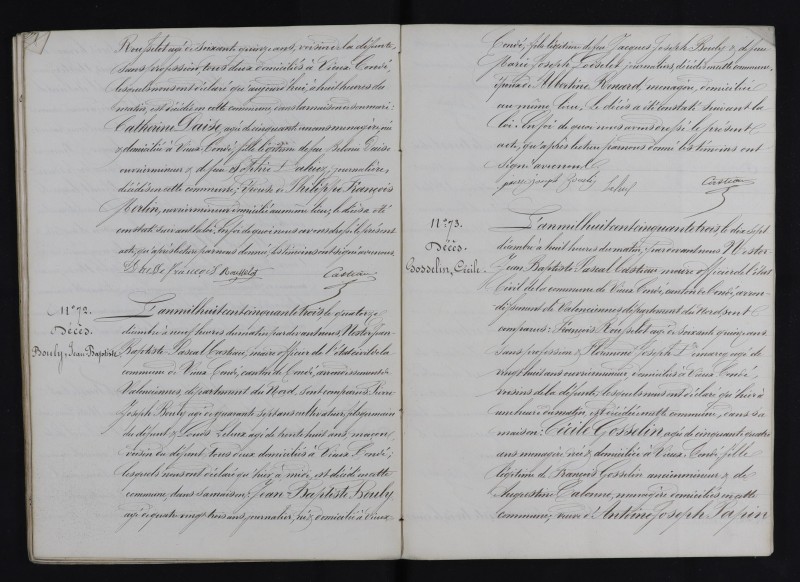 Rousselot agé de Soixante quinze ans, voisins de la défunte,
sans profession, tous deux domiciliés à Vieux Condé,
lesquels nous ont déclaré qu'aujourd'hui, à huit heures du
matin, est décédée en cette commune, dans la maison de son mari:
Catherine Daise, agée de cinquante un ans ménagère, née
& domiciliée à Vieux Condé, fille légitime de feu Daise
ouvrier mineur & de feue journalière,
décédés en cette commune; épouse de Philippe François
Merlin, ouvrier mineur domicilié au même lieu, le décès a été
constaté suivant la loi. En foi de quoi nous avons dressé le présent
acte, qu'après lecture par nous donnée, les témoins ont signé avec nous.
françois Rousselot Castiau
N° 72.
Décès.
Bouly, Jean Baptiste.
L'an mil huit cent cinquante trois, le quatorze
à neuf heures du matin, pardevant nous, Nestor Jean
Baptiste Pascal Castiau, maire officier de l'état civil de la
commune de Vieux Condé, canton de Condé, arrondissement de
Valenciennes, département du Nord, sont comparus Pierre
Joseph Bouly agé de quarante sept ans cultivateur, fils germain
du défunt & Louis agé de trente huit ans, maçon,
voisin du défunt, tous deux domiciliés à Vieux Condé;
lesquels nous ont déclaré qu'hier, à midi, est décédé en cette
commune, dans sa maison: Jean Baptiste Bouly
agé de quatre vingt trois ans, journalier, né & domicilié à Vieux
Condé, fils légitime de feu Jacques Joseph Bouly & de feue
Marie Joseph Loiselet, journaliers, décédés en cette commune,
époux d'Albertine Renard, ménagère, domiciliée
au même lieu. Le décès a été constaté suivant la
loi. En foi de quoi nous avons dressé le présent
acte, qu'après lecture par nous donnée les témoins ont
signé avec nous.
pierre joseph Bouly Castiau
N° 73.
Décès.
Gosselin, Cécile.
L'an mil huit cent cinquante trois, le dix sept
à huit heures du matin, pardevant nous Nestor
Jean Baptiste Pascal Castiau maire officier de l'état
civil de la commune de Vieux Condé, canton de Condé, arron-
dissement de Valenciennes département du Nord, sont
comparus: François Rousselot agé de soixante quinze ans
sans profession & Florimond Joseph agé de
vingt huit ans ouvrier mineur, domiciliés à Vieux Condé,
voisins de la défunte, lesquels nous ont déclaré qu'hier à
une heure du matin, est décédée en cette commune, dans sa
maison: Cécile Gosselin, agée de cinquante quatre
ans ménagère, née & domiciliée à Vieux Condé, fille
légitime de François Gosselin ancien mineur & de
Augustine Calonne, ménagère domiciliés en cette
commune; veuve d'Antoine Joseph Papin